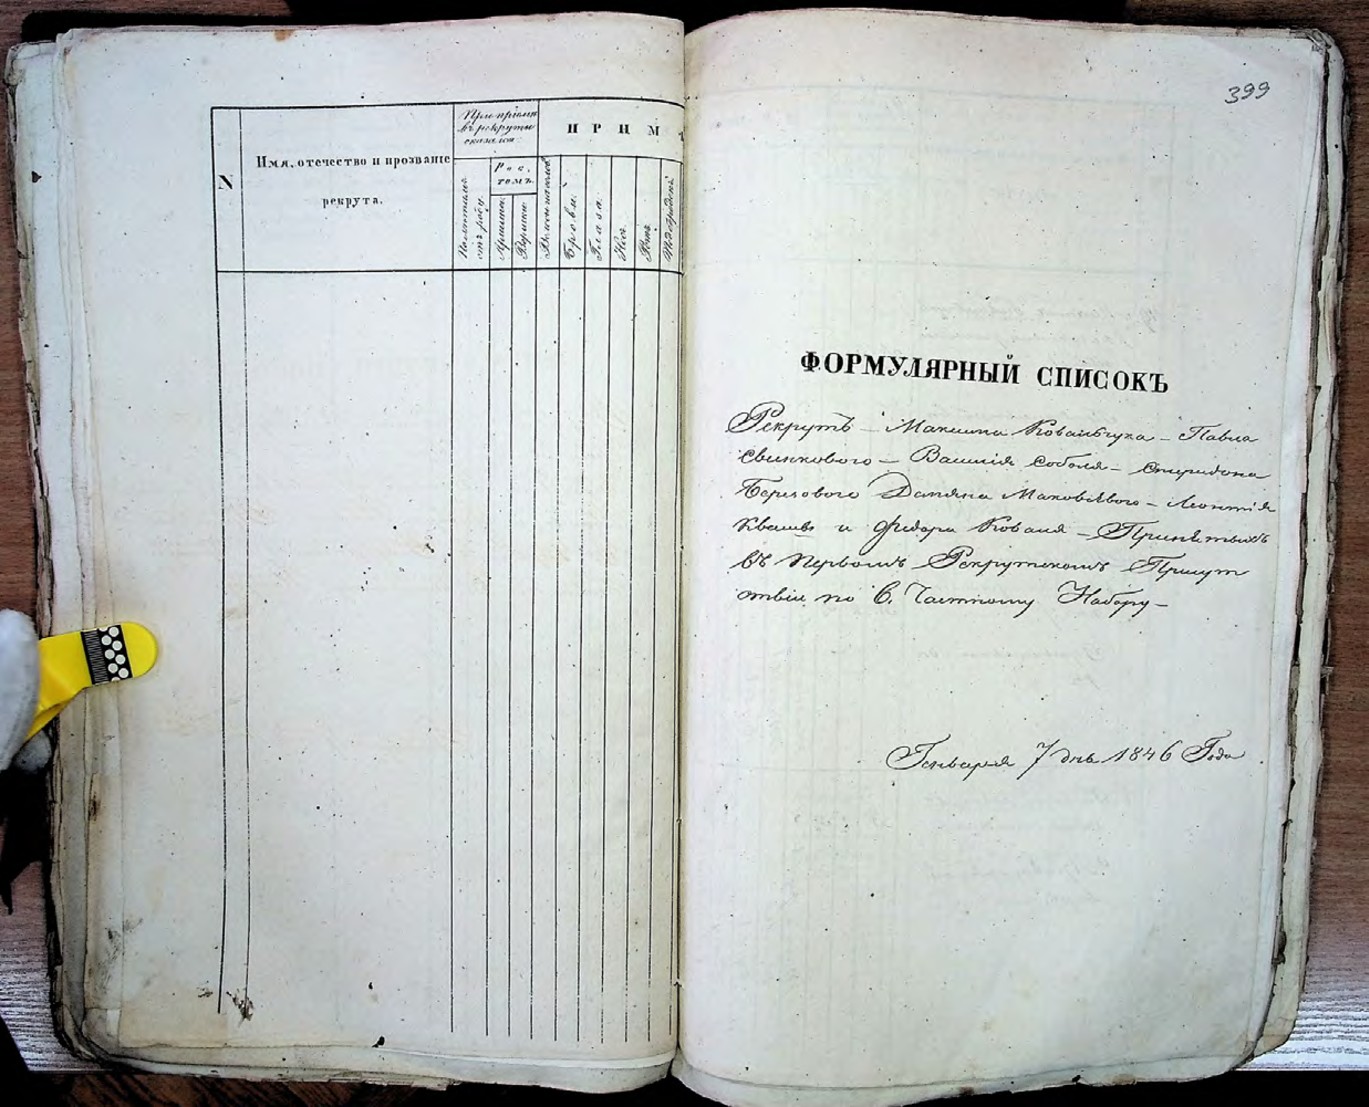 N
Имя, отечество и прозваніе
рекрута.
При пріемѣ
въ рекруты
оказался:
Рос,
томъ.
отъ роду.
Аршинъ.
Вершки.
Брови.
Глаза.
Носъ.
ПРИМ
399
ФОРМУЛЯРНЫЙ СПИСОКЪ
Рекрутъ – Максима Ковальчука – Павла
Свинкового – Василія Соболя – Спиридона
Березового Демяна Маковѣвого – Леонтія
Кваши и Федора Коваля – Принятыхъ
въ первомъ Рекрутскомъ Присут
ствіи по 6. Частному Набору –
Генваря 7 дня 1846 Года